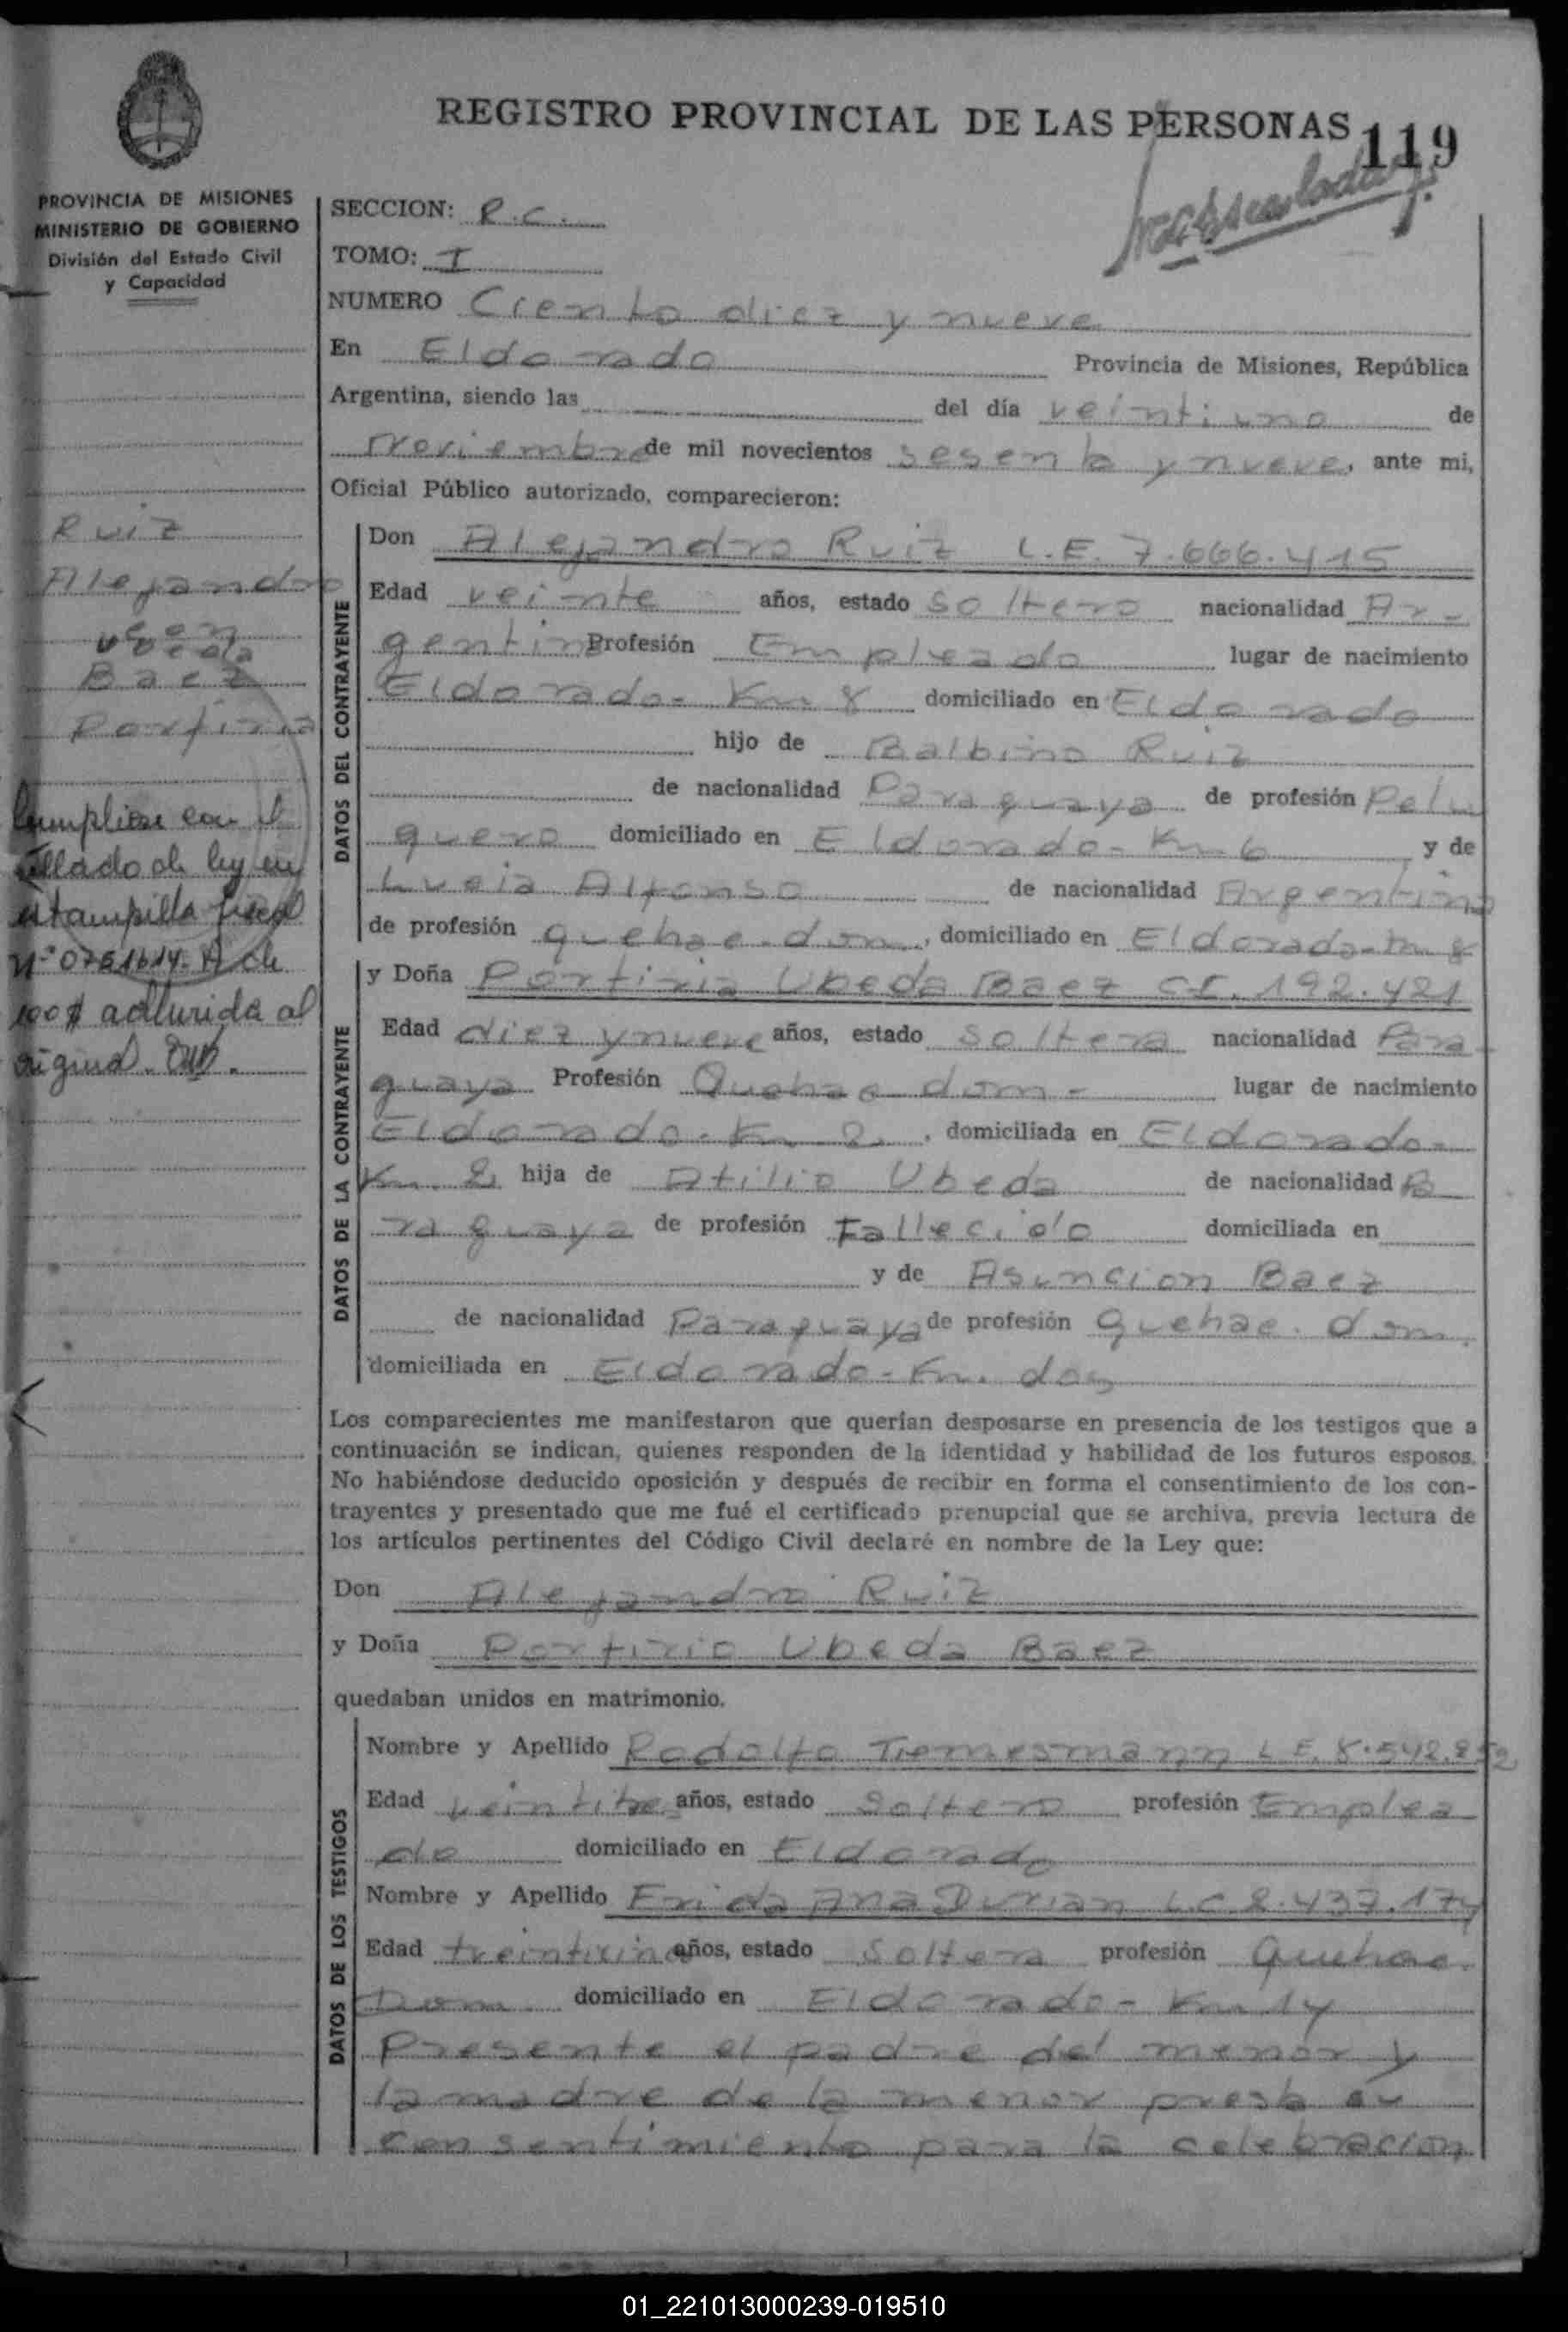 REGISTRO PROVINCIAL DE LAS PERSONAS
119
PROVINCIA DE MISIONES
MINISTERIO DE GOBIERNO
División del Estado Civil
y Capacidad
SECCION: R.C.
TOMO: I
NUMERO Ciento diez y nueve
En Eldorado Provincia de Misiones, República
Argentina, siendo las del día veintiuno de
noviembre de mil novecientos sesenta y nueve, ante mi,
Oficial Público autorizado, comparecieron:
Ruiz
Alejandro
con
Ubeda
Baez
Porfiria
Cumpliose con el
sellado de ley en
estampilla fiscal
Nº 0761614-A de
100$ adherida al
original.
DATOS DEL CONTRAYENTE
Don Alejandro Ruiz L.E. 7.666.415
Edad veinte años, estado soltero nacionalidad Ar-
gentino Profesión Empleado lugar de nacimiento
Eldorado- Km 8 domiciliado en Eldorado
hijo de Balbino Ruiz
de nacionalidad Paraguaya de profesión Pelu
quero domiciliado en Eldorado- Km 6 y de
Lucia Alfonso de nacionalidad Argentina
de profesión quehac. dom., domiciliado en Eldorado-Km 8
DATOS DE LA CONTRAYENTE
y Doña Porfiria Ubeda Baez C.I. 192.421
Edad diez y nueve años, estado soltera nacionalidad Para-
guaya Profesión Quehac dom- lugar de nacimiento
Eldorado- Km 2, domiciliada en Eldorado-
Km. 2 hija de Atilio Ubeda de nacionalidad Pa
raguaya de profesión Fallecido domiciliada en
y de Asuncion Baez
de nacionalidad Paraguaya de profesión quehac. dom.
domiciliada en Eldorado- Km. dos
Los comparecientes me manifestaron que querían desposarse en presencia de los testigos que a
continuación se indican, quienes responden de la identidad y habilidad de los futuros esposos.
No habiéndose deducido oposición y después de recibir en forma el consentimiento de los con-
trayentes y presentado que me fué el certificado prenupcial que se archiva, previa lectura de
los artículos pertinentes del Código Civil declaré en nombre de la Ley que:
Don Alejandro Ruiz
y Doña Porfirio Ubeda Baez
quedaban unidos en matrimonio.
DATOS DE LOS TESTIGOS
Nombre y Apellido Rodolfo Tiemesmann L.E. 8.542.852
Edad veintitres años, estado soltero profesión Emplea
do domiciliado en Eldorado
Nombre y Apellido Frida Ana Durian L.C. 2.437.174
Edad años, estado soltera profesión Quehac.
Dom. domiciliado en Eldorado- Km 14
Presente el padre del menor y
la madre de la menor presta su
consentimiento para la celebracion
01_221013000239-019510